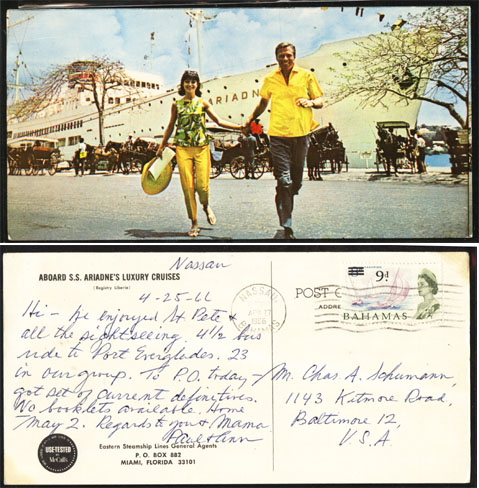 ARIADNE
ABOARD S.S. ARIADNE'S LUXURY CRUISES
(Registry Liberia)
Nassau
4-25-66
Hi - We enjoyed St. Pete &
all the sightseeing. 4 1/2 bus
ride to Port Everglades. 23
in our group. To P.O. today -
got set of current definitives.
No booklets available. Home
May 2. Regards to you & Mama
Paul & Ann
USE-TESTED
BY McCall's
Eastern Steamship Lines General Agents
P. O. BOX 882
MIAMI, FLORIDA 33101
POST C
ADDRE
NASSAU
1966
BAHAMAS
9d
BAHAMAS
Mr. Chas A. Schumann,
1143 Kitmore Road,
Baltimore 12,
U.S.A.